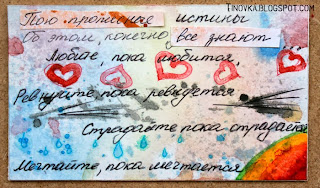 TINOVKA.BLOGSPOT.COM
Пою прописные истины
Об этом конечно, все знают...
Любите, пока любится,
Ревнуйте пока ревнуется
Страдайте пока страдается
Мечтайте, пока мечтается